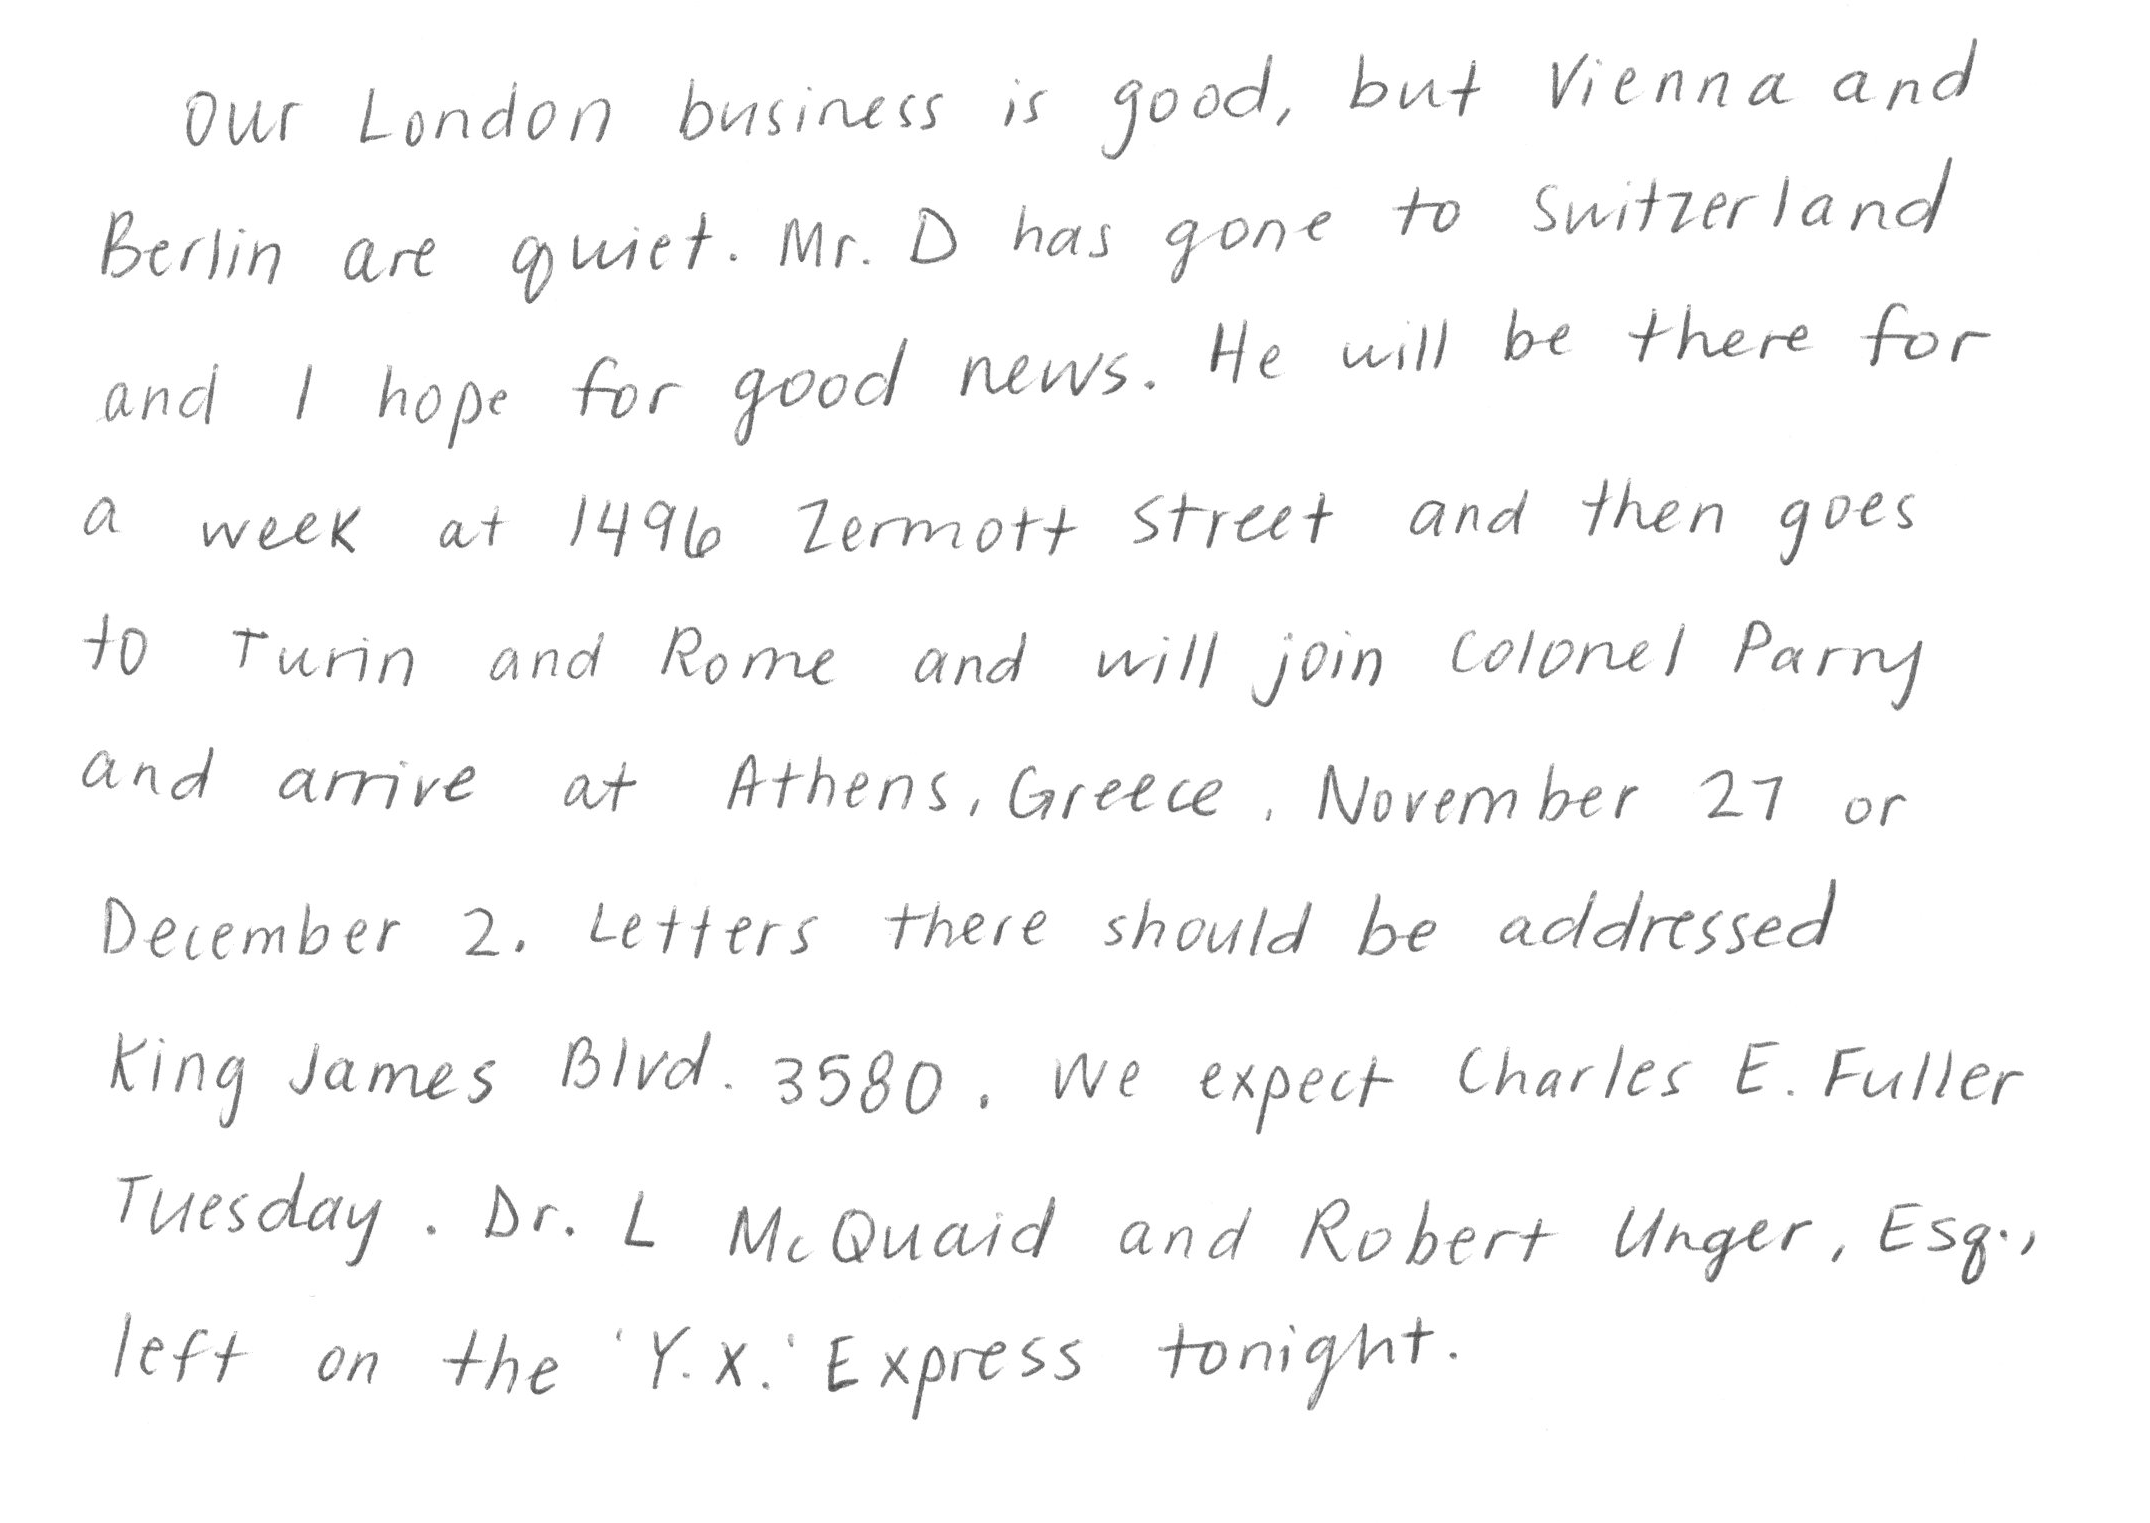 Our London business is good, but Vienna and
Berlin are quiet. Mr. D has gone to Switzerland
and I hope for good news. He will be there for
a week at 1496 Zermott Street and then goes
to Turin and Rome and will join Colonel Parry
and arrive at Athens, Greece, November 27 or
December 2. Letters there should be addressed
King James Blvd. 3580. We expect Charles E. Fuller
Tuesday. Dr. L McQuaid and Robert Unger, Esq.,
left on the 'Y.X.' Express tonight.